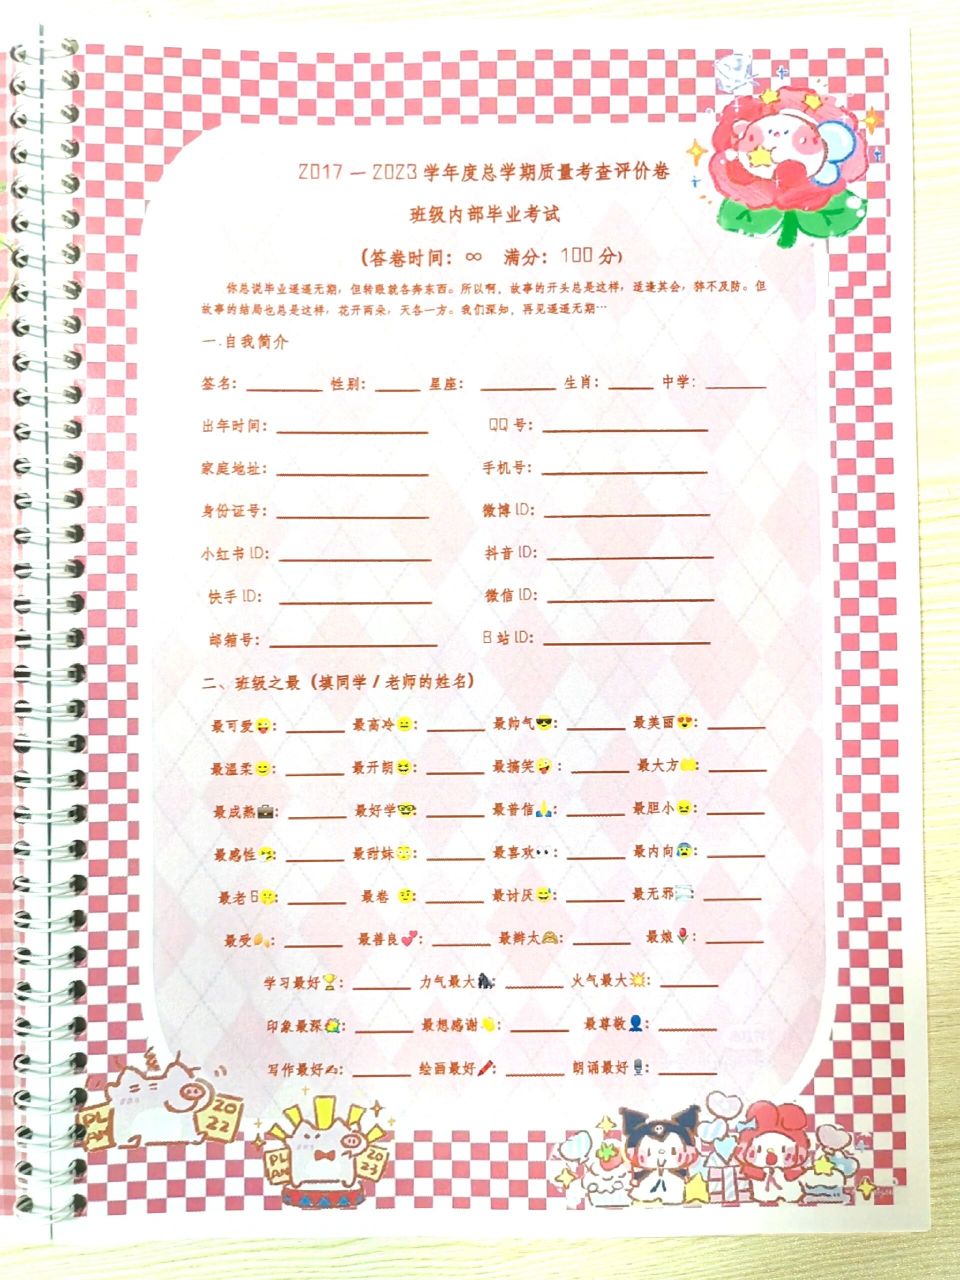 2017 — 2023 学年度总学期质量考查评价卷
班级内部毕业考试
(答卷时间：∞ 满分：100 分)
你总说毕业遥遥无期，但转眼就各奔东西。所以啊，故事的开头总是这样，适逢其会，猝不及防。但
故事的结局也总是这样，花开两朵，天各一方。我们深知，再见遥遥无期…
一.自我简介
签名：________ 性别：_____ 星座：________ 生肖：_____ 中学：______
出年时间：________________ QQ 号：________________
家庭地址：________________ 手机号：________________
身份证号：________________ 微博 ID：________________
小红书 ID：________________ 抖音 ID：________________
快手 ID：________________ 微信 ID：________________
邮箱号：________________ B 站 ID：________________
二、班级之最（填同学 / 老师的姓名）
最可爱😜：______ 最高冷😐：______ 最帅气😎：______ 最美丽😍：______
最温柔😊：______ 最开朗😆：______ 最搞笑🤪：______ 最大方🤲：______
最成熟💼：______ 最好学🤓：______ 最普信🙏：______ 最胆小😖：______
最感性🤧：______ 最甜妹😳：______ 最喜欢👀：______ 最内向😰：______
最老 6🤫：______ 最卷 🤨：______ 最讨厌😅：______ 最无邪：______
最受：______ 最善良💕：______ 最辫太🙈：______ 最娘🌹：______
学习最好🏆：______ 力气最大🦍：______ 火气最大💥：______
印象最深：______ 最想感谢👏：______ 最尊敬👤：______
写作最好✍：______ 绘画最好🖍：______ 朗诵最好🎙：______
PLAN
2022
PLAN
2023